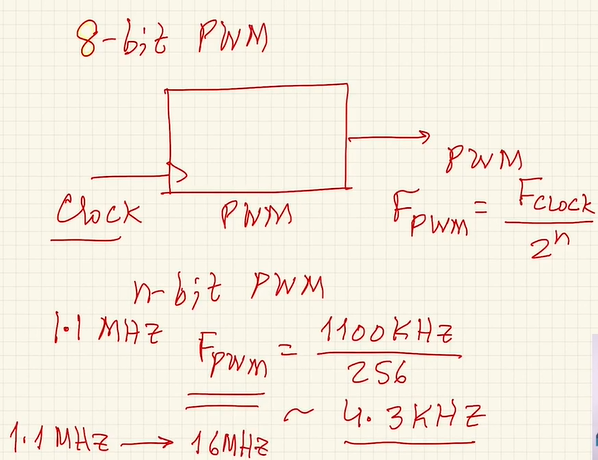 8-bit PWM
PWM
Clock
PWM
F_PWM = F_CLOCK / 2^n
n-bit PWM
1.1 MHZ
F_PWM = 1100KHZ / 256
~ 4.3KHZ
1.1MHZ → 16MHZ